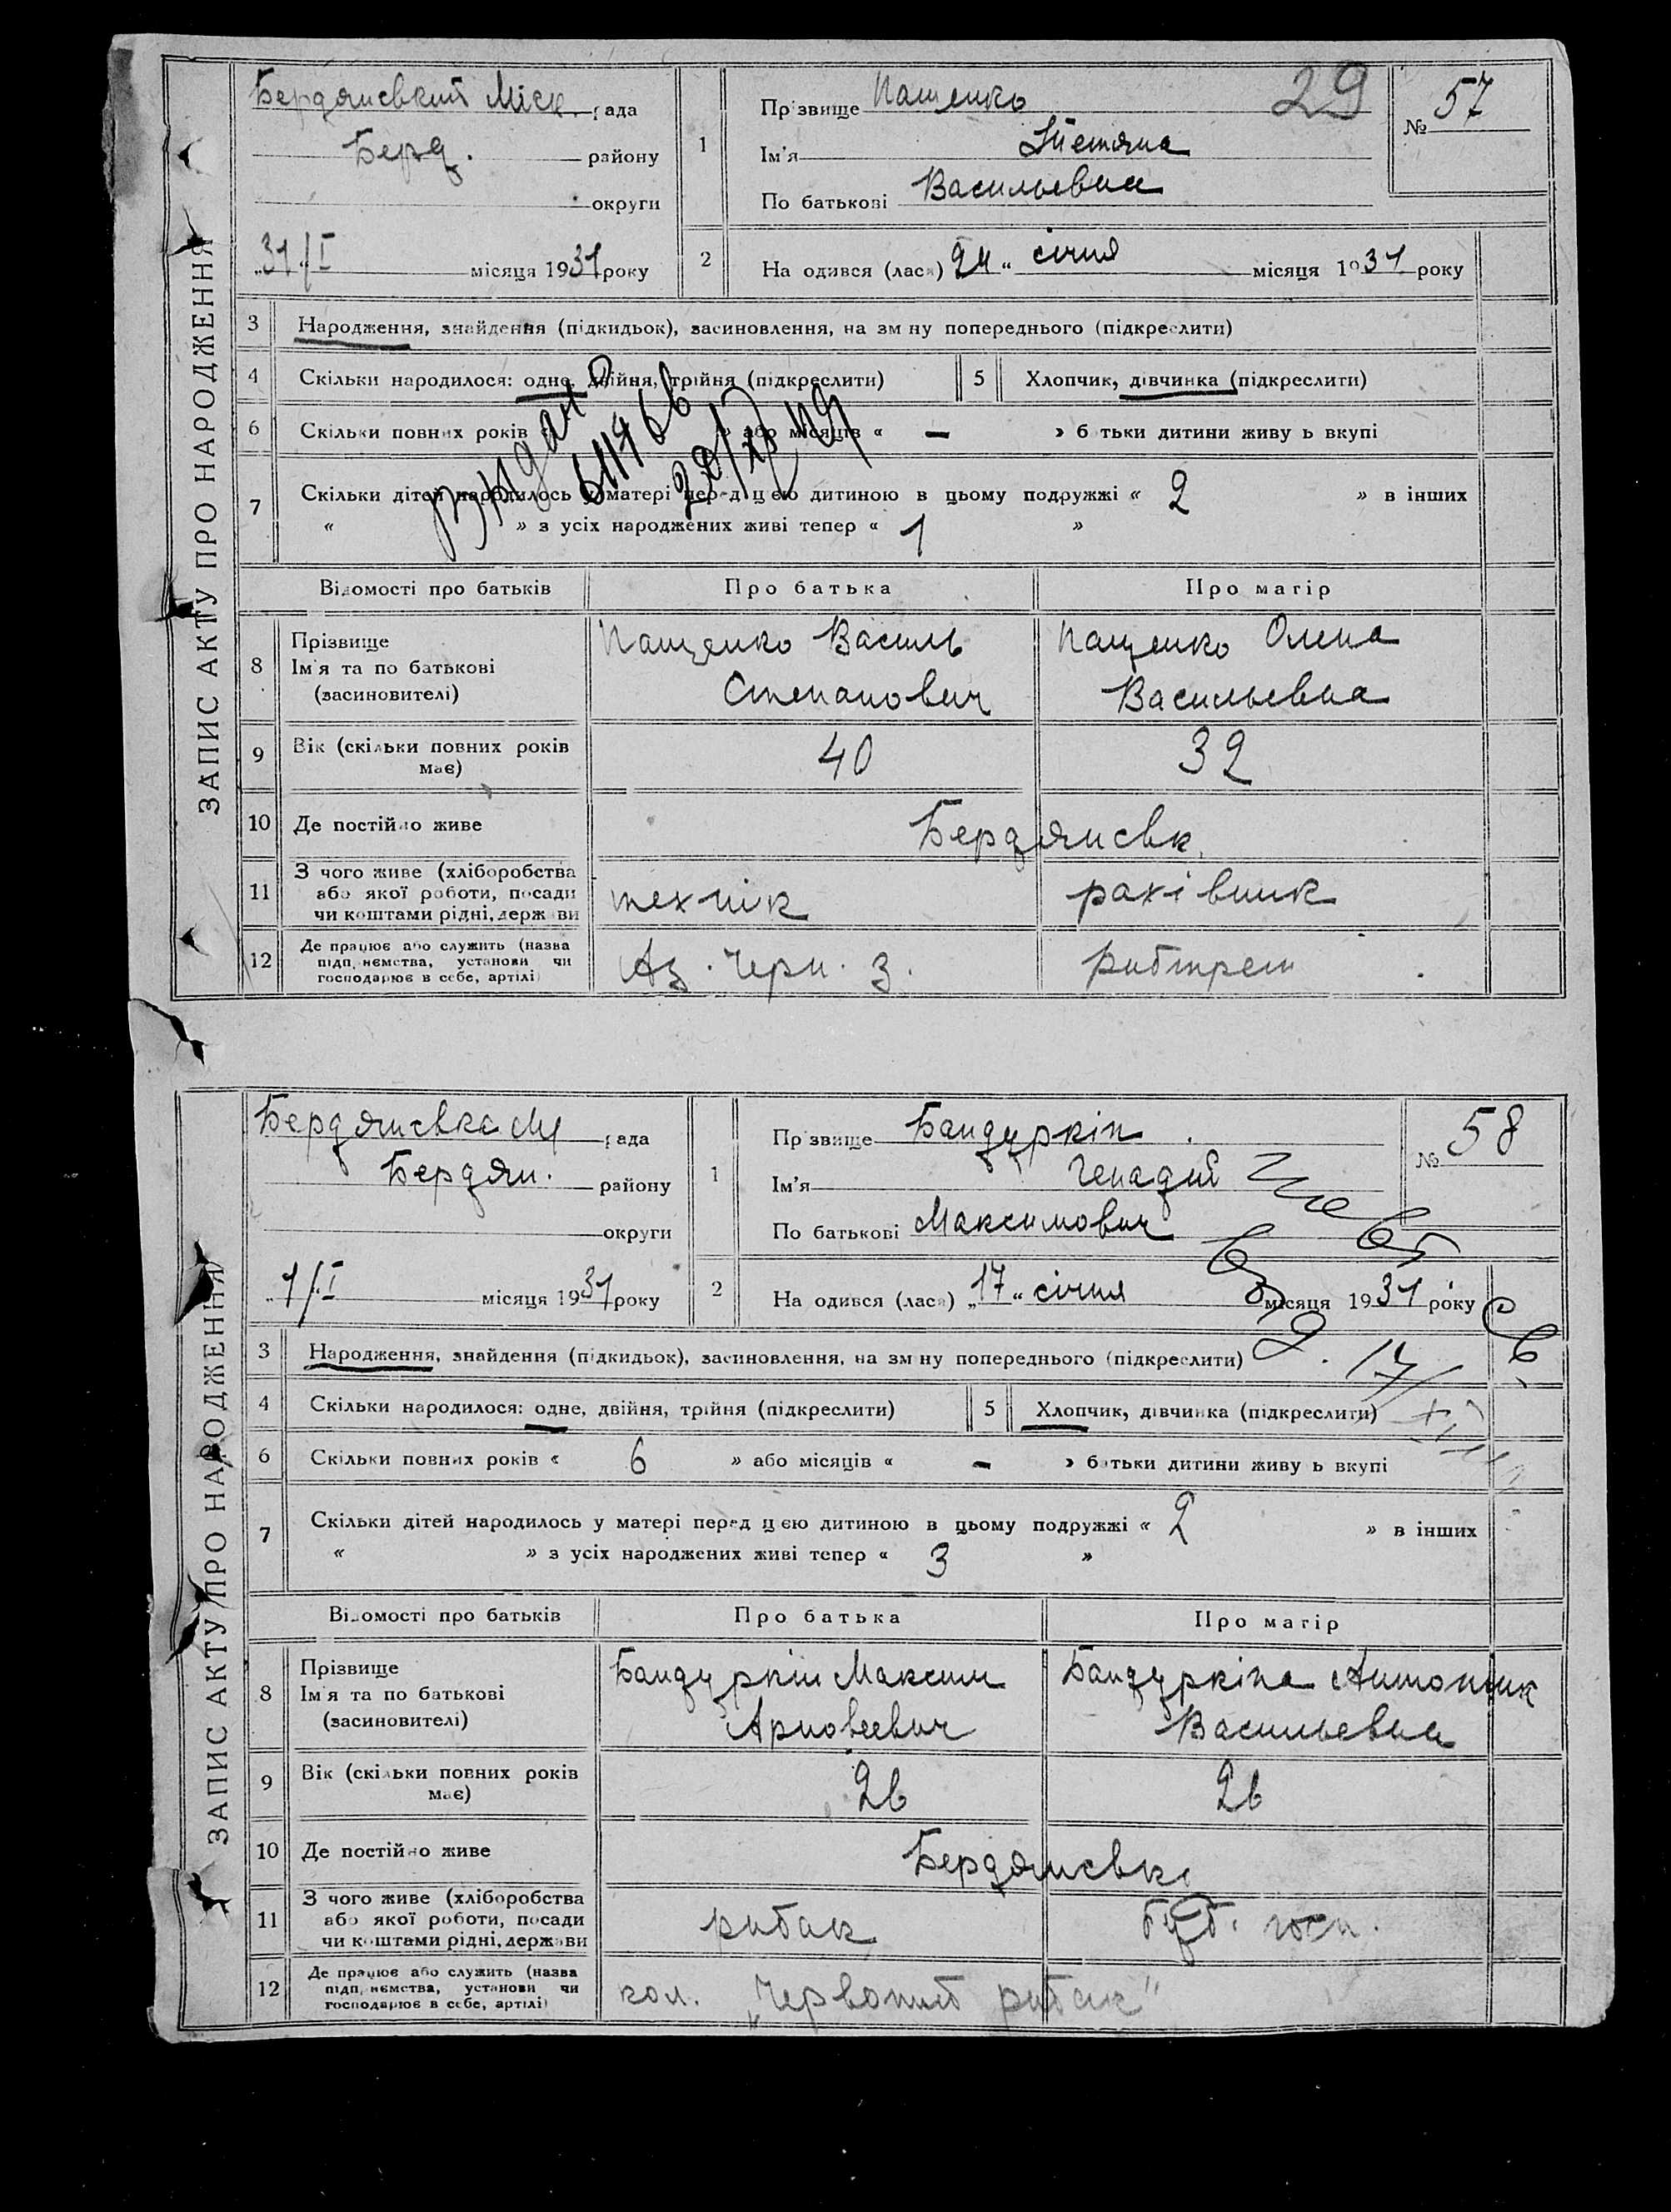 ЗАПИС АКТУ ПРО НАРОДЖЕННЯ
Бердянський Міск. рада
Берд. району
округи
„31“/I місяця 1931 року
29
№ 57
1 Прізвище Пащенко
Ім'я Тетяна
По батькові Васильевна
2 На одився (лася) „24“ січня місяця 1931 року
3 Народження, знайдення (підкидьок), засиновлення, на зм ну попереднього (підкреслити)
4 Скільки народилося: одне, двійня, трійня (підкреслити)
5 Хлопчик, дівчинка (підкреслити)
6 Скільки повних років « » або місяців « — » б тьки дитини живу ь вкупі
7 Скільки дітей народилось у матері перед цією дитиною в цьому подружжі « 2 » в інших
« » з усіх народжених живі тепер « 1 »
Відомості про батьків Про батька Про матір
8 Прізвище
Ім'я та по батькові
(засиновителі)
Пащенко Василь
Степанович
Пащенко Олена
Васильевна
9 Вік (скільки повних років
має)
40 32
10 Де постійно живе Бердянськ
11 З чого живе (хліборобства
або якої роботи, посади
чи коштами рідні, держави
технік рахівник
12 Де працює або служить (назва
підп, немства, установи чи
господарює в себе, артілі)
Аз. Черн. з. Рибтрест
ЗАПИС АКТУ ПРО НАРОДЖЕННЯ
Бердянська рада
Бердян. району
округи
„1“/I місяця 1931 року
№ 58
1 Прізвище Бандуркін
Ім'я Генадий
По батькові Максимович
2 На одився (лася) „17“ січня місяця 1931 року
3 Народження, знайдення (підкидьок), засиновлення, на зм ну попереднього (підкреслити)
4 Скільки народилося: одне, двійня, трійня (підкреслити)
5 Хлопчик, дівчинка (підкреслити)
6 Скільки повних років « 6 » або місяців « — » батьки дитини живу ь вкупі
7 Скільки дітей народилось у матері перед цією дитиною в цьому подружжі « 2 » в інших
« » з усіх народжених живі тепер « 3 »
Відомості про батьків Про батька Про матір
8 Прізвище
Ім'я та по батькові
(засиновителі)
Бандуркін Максим
Бандуркіна
Васильевна
9 Вік (скільки повних років
має)
26 26
10 Де постійно живе Бердянськ
11 З чого живе (хліборобства
або якої роботи, посади
чи коштами рідні, держави
рибак госп.
12 Де працює або служить (назва
підп, немства, установи чи
господарює в себе, артілі)
кол. „Червоний рибак“